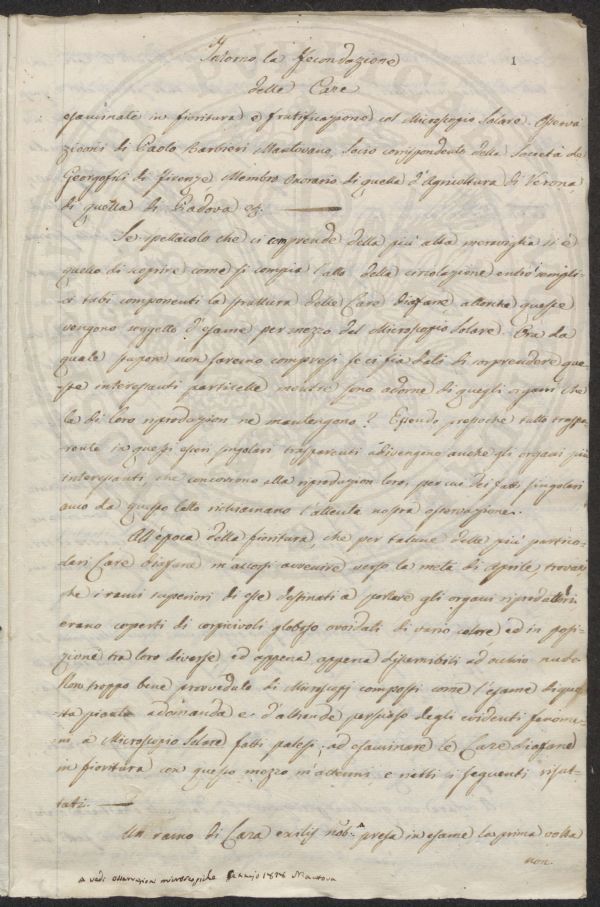 Intorno la Fecondazione
1
delle Care
esaminate in fioritura e frutificazione col Microscopio Solare. Osserva
zioni di Paolo Barbieri Mantovano, Socio corrispondente della Società de
Georgofili di Firenze Membro Onorario di quella d'Agricoltura di Verona
di quella di Padova &.
Se spettacolo che ci comprende della più alta meraviglia si è
quello di scoprire come si compia l'atto della circolazione entro i sempli-
ci tubi componenti la struttura delle Care diafane allorché queste
vengono soggette d'esame per mezzo del Microscopio Solare. Ora da
quale stupore non saremo compresi se ci fia dato di sorprendere que
ste interessanti particelle mentre sono adorne di quegli organi che
la di loro riproduzion ne mantengono? Essendo pressoché tutto traspa
rente in questi esseri singolari trasparenti divengono anche gli organi più
interessanti che concorrono alla riproduzion loro, per cui dei fatti singolari
anco da questo lato richiamano l'attenta nostra osservazione.
All'epoca della fioritura, che per talune delle più partico-
lari Care diafane m'accorsi avvenire verso la metà di Aprile, trovai
che i rami superiori di esse destinati a portare gli organi riproduttori
erano coperti di corpicivoli globoso ovoidali di vario colore ed in posi-
zione tra loro diverse ed appena appena discernibili ad occhio nudo.
Non troppo bene provveduto di Microscopj composti come l'esame di que
sta pianta adimanda e d'altronde persuaso degli evidenti fenome-
ni, a Microscopio Solare fatti palesi; ad esaminare le Care diafane
in fioritura con questo mezzo m'attenni e netti i seguenti risul-
tati.
Un ramo di Cara exilis nob. A presa in esame la prima volta
non.
A vedi osservazioni microscopiche 1828 Mantova